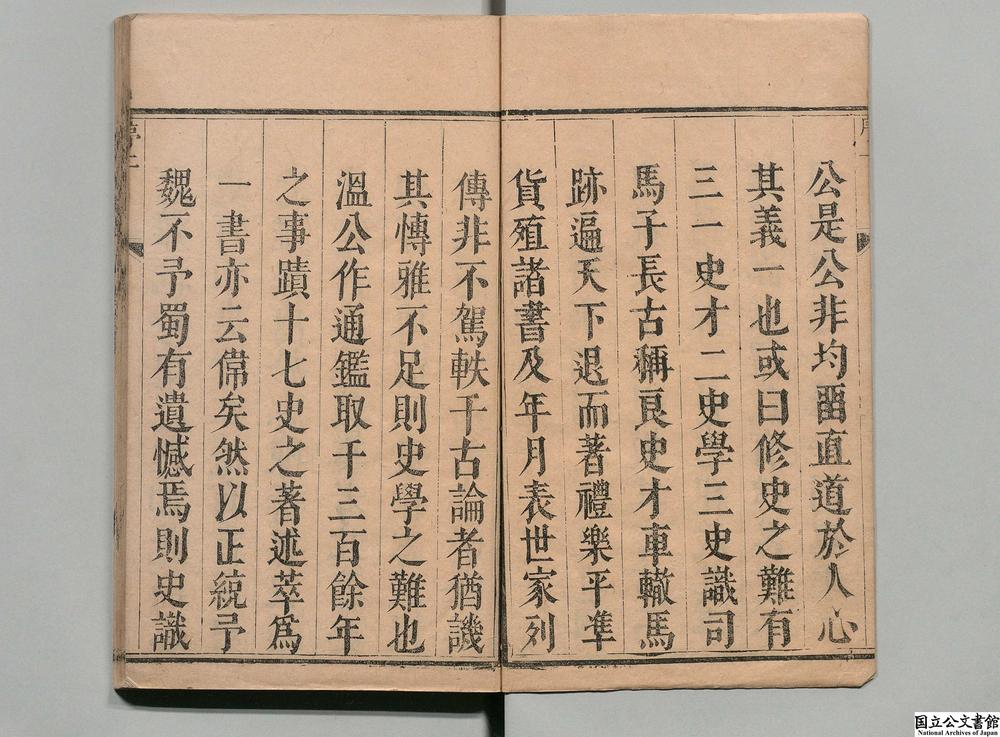 公是公非均畱直道於人心
其義一也或曰修史之難有
三一史才二史學三史識司
馬子長古稱良史才車轍馬
跡遍天下退而著禮樂平準
貨殖諸書及年月表世家列
傳非不駕軼千古論者猶譏
其博雅不足則史學之難也
溫公作通鑑取千三百餘年
之事蹟十七史之著述萃爲
一書亦云僃矣然以正統予
魏不予蜀有遺憾焉則史識
序二
国立公文書館
National Archives of Japan